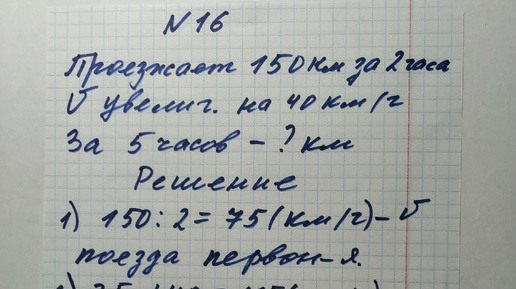 N 16
Проезжает 150 км за 2 часа
V увелич. на 40 км/ч
За 5 часов – ? км
Решение
1) 150 : 2 = 75 (км/ч) – V
поезда первон-я.